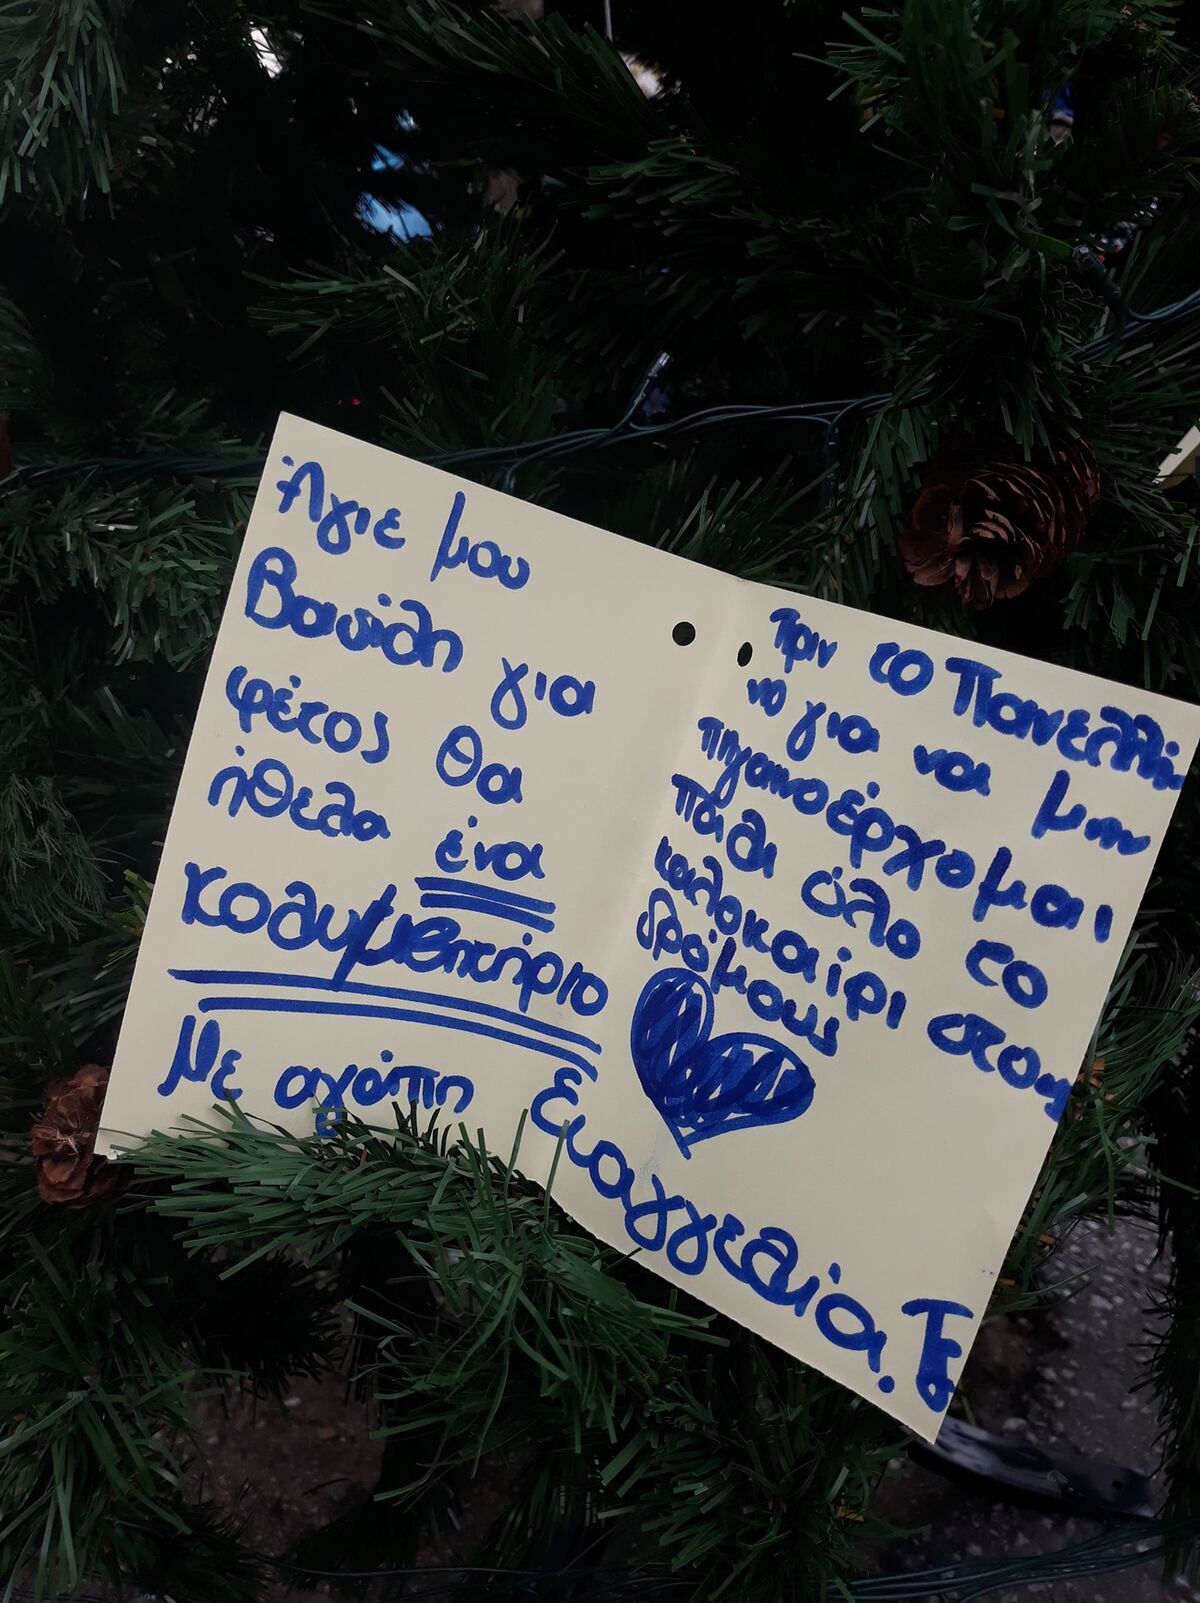 Άγιε μου
Βασίλη για
φέτος θα
ήθελα ένα
κολυμβητήριο
Με αγάπη Ευαγγελία. Το
πριν το Πανελλή
νο για να μην
πηγαινοέρχομαι
πάλι όλο το
καλοκαίρι στους
δρόμους